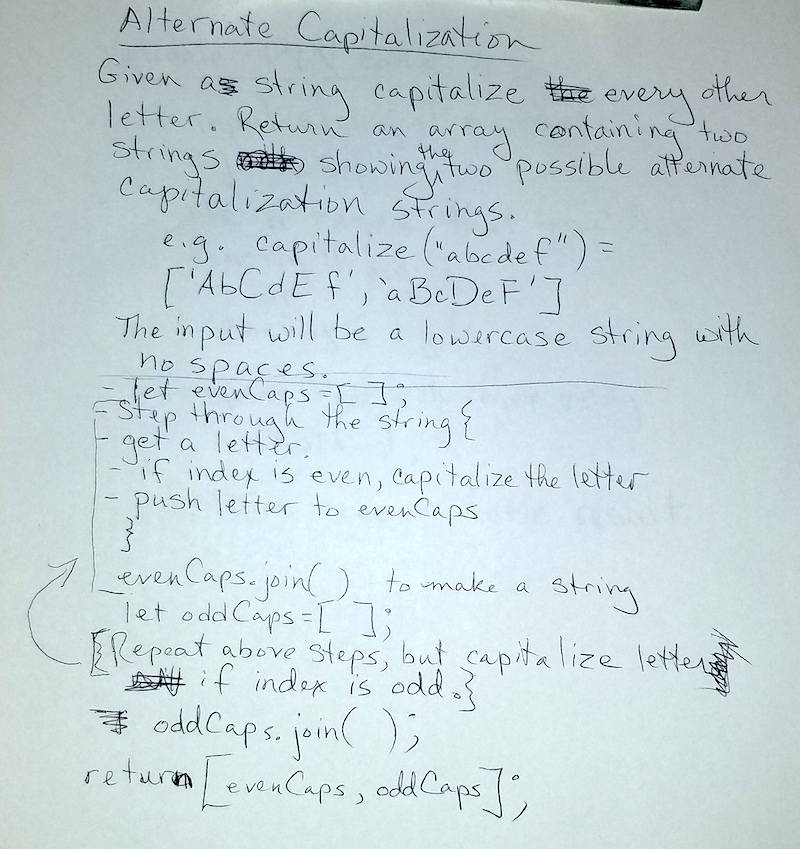 Alternate Capitalization
Given a string capitalize every other
letter. Return an array containing two
strings showing the two possible alternate
capitalization strings.
e.g. capitalize ("abcdef") =
['AbCdEf', `aBcDeF']
The input will be a lowercase string with
no spaces.
- let evenCaps = [ ];
- Step through the string {
- get a letter.
- if index is even, capitalize the letter
- push letter to evenCaps
}
evenCaps.join( ) to make a string
let oddCaps = [ ];
[{Repeat above steps, but capitalize letter
if index is odd.}
oddCaps.join( );
return [evenCaps, oddCaps];